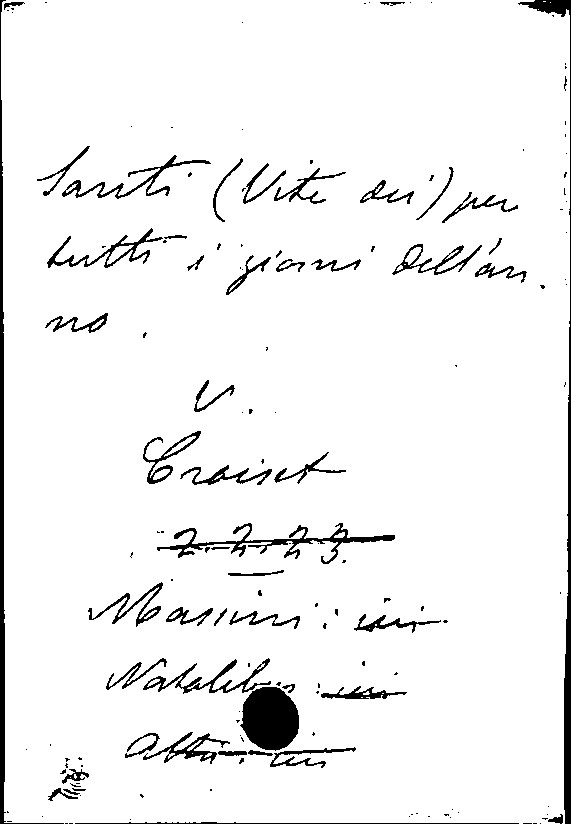 Santi (Vite dei) per
tutti i giorni dell'an.
no.
V.
Croiset
2. 2. 23.
Massini: ivi
Natalibus: ivi